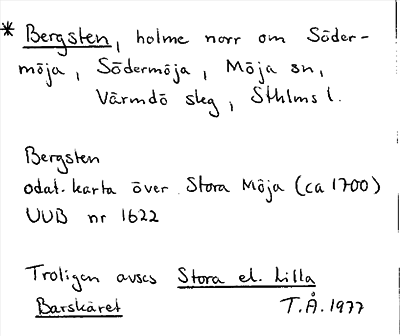 * Bergsten, holme norr om Söder-
möja, Södermöja, Möja sn,
Värmdö skg, Sthlms l.
Bergsten
odat. karta över Stora Möja (ca 1700)
UUB nr 1622
Troligen avses Stora el. Lilla
Barskäret T.Å. 1977